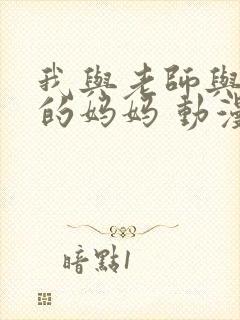 我與老師與
的妈妈 動漫
暗點1